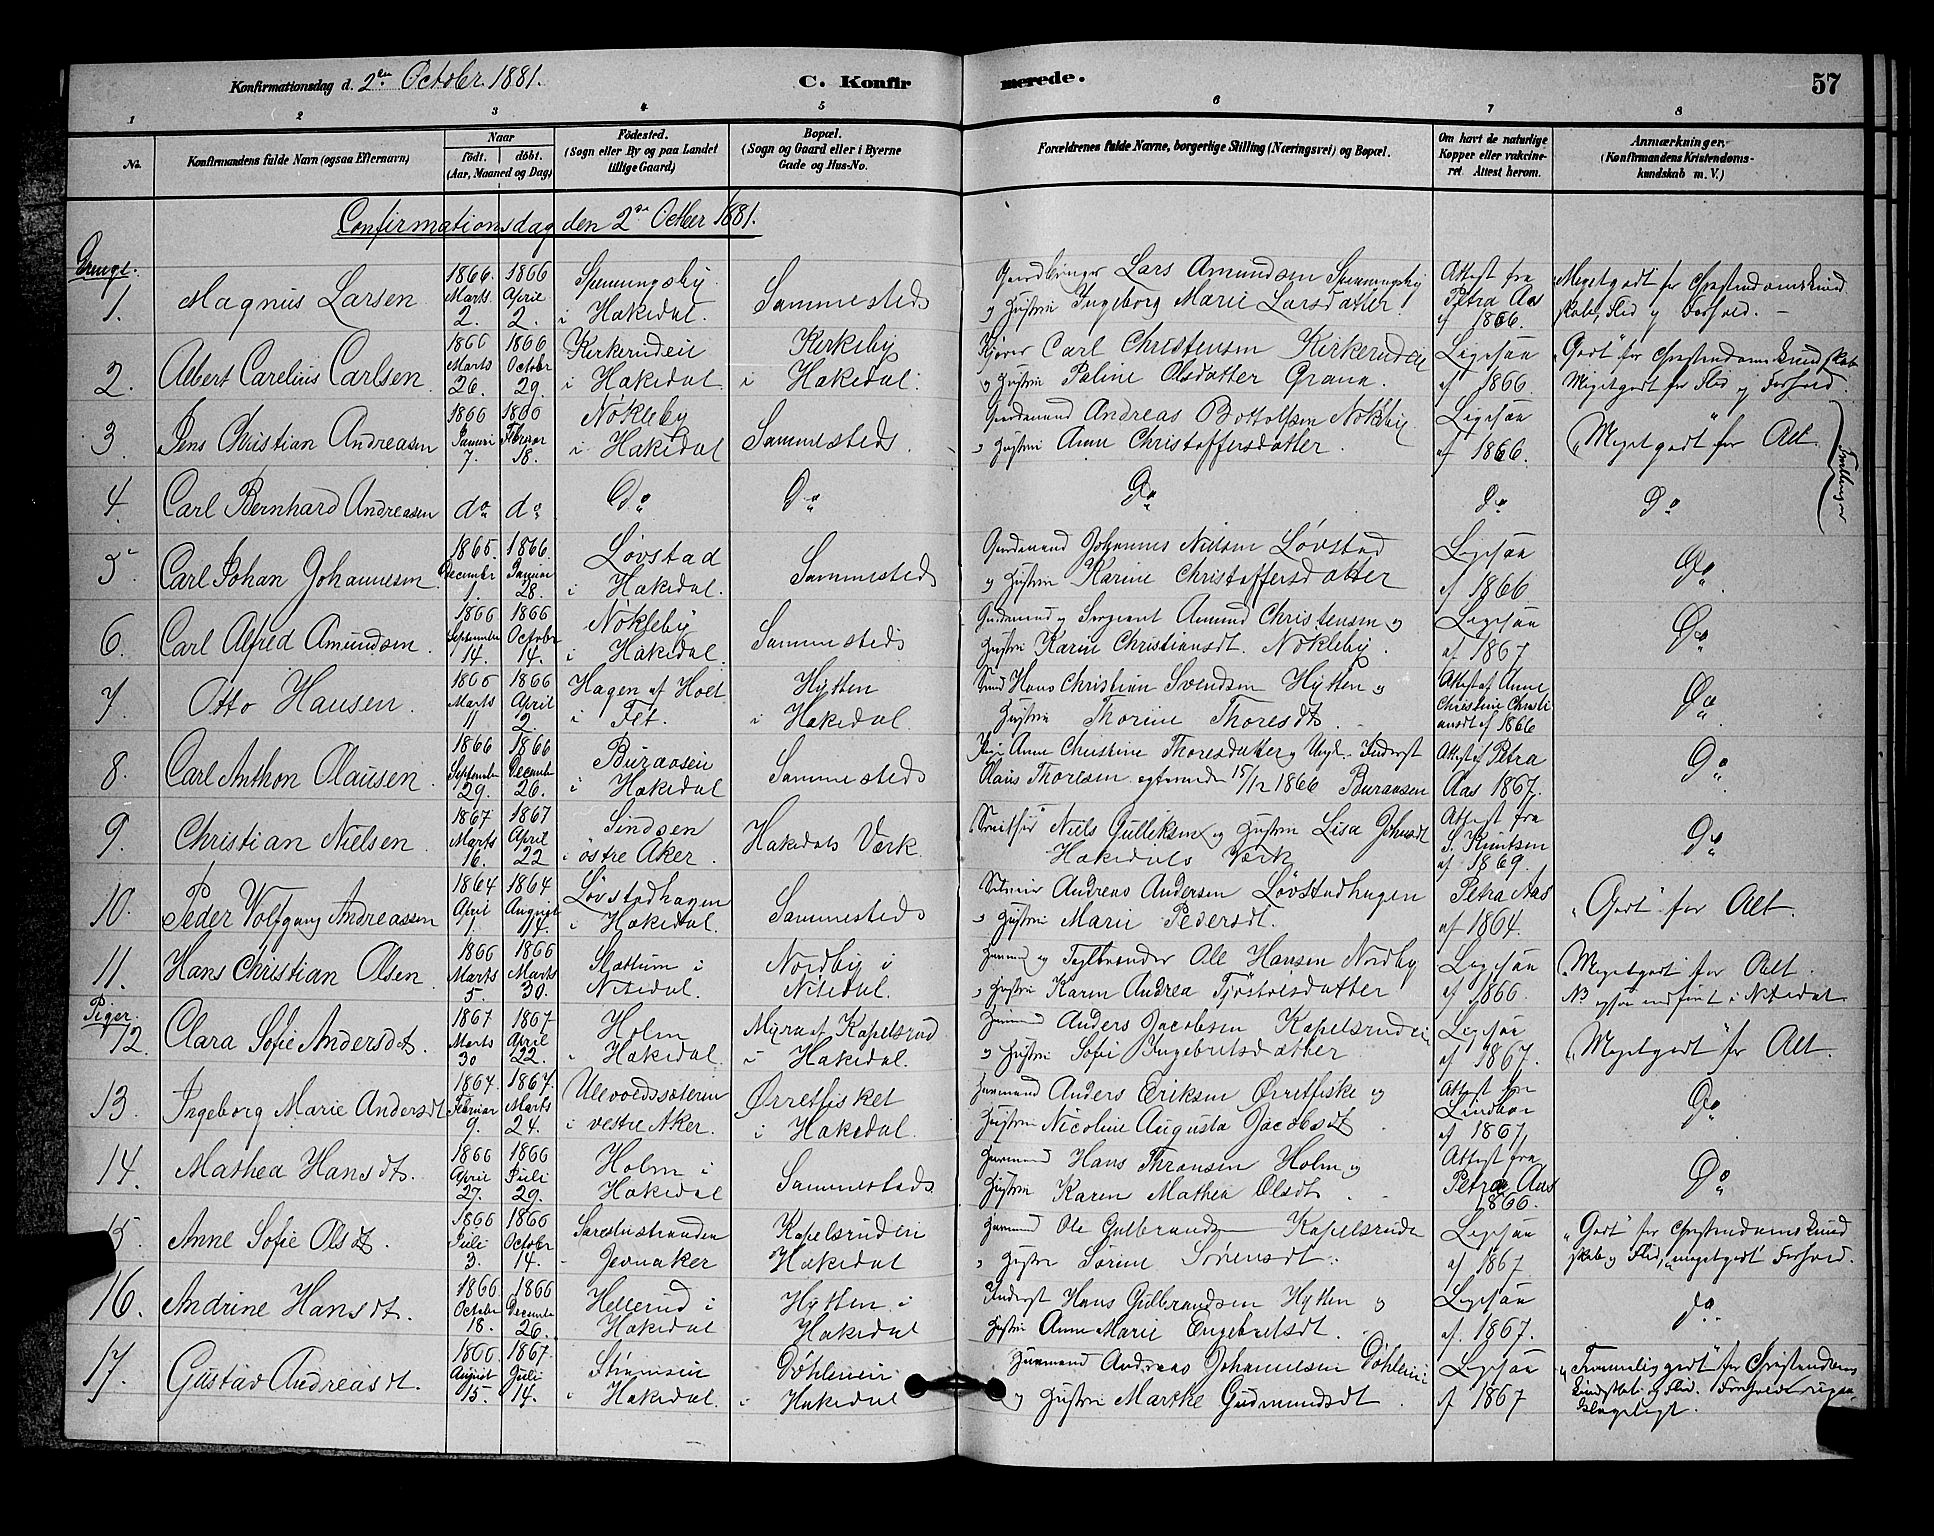 Konfirmationsdag d. 2en October 1881.
C. Konfir merede.
57
1 2 3 4 5 6 7 8
No.
Konfirmandens fulde Navn (ogsaa Efternavn)
Naar
født. døbt.
(Aar, Maaned og Dag)
Fødested.
(Sogn eller By og paa Landet
tillige Gaard)
Bopæl.
(Sogn og Gaard eller i Byerne
Gade og Hus-No.
Forældrenes fulde Navne, borgerlige Stilling (Næringsvei) og Bopæl.
Om havt de naturlige
Kopper eller vakcine-
ret. Attest herom.
Anmærkninger.
(Konfirmandens Kristendoms-
kundskab m. V.)
Confirmationsdag den 2en October 1881.
Drenge.
1. Magnus Larsen 1866. Marts 2. 1866 April 2. i Hakedal. Sammesteds
Gaardbruger Lars Amundsen
og Hustru Ingeborg Marie Larsdatter.
Attest fra Petra Aas af 1866.
Megetgodt for Christendomskund
skab, Flid og Forhold. –
2. Albert Carelius Carlsen 1866 Marts 26. 1866 October 29. Kirkerudeie i Hakedal Kirkeby i Hakedal.
Carl Christensen Kirkerudeie
og Hustru Paline Olsdatter Grana.
Ligesaa af 1866.
"Godt" for Christendomskundskab
Megetgodt for Flid og Forhold.
3. Jens Christian Andreasen 1866 Januar 7. 1866 Februar 18. Nökleby i Hakedal Sammesteds.
Gaardmand Andreas Bottolfsen Nökleby
og Hustru Anne Christoffersdatter.
Ligesaa af 1866.
"Megetgodt" for Alt.
Tvillinger
4. Carl Bernhard Andreasen do do Do Do
Do
Do Do
5. Carl Johan Johannesen 1865. December 1. 1866. Januar 28. Løvstad i Hakedal. Sammesteds
Gaardmand Johannes Nilsen Løvstad
og Hustru Karine Christoffersdatter
Ligesaa af 1866
Do
6. Carl Alfred Amundsen 1866 September 14. 1866 October 14. Nökleby i Hakedal. Sammesteds
Gaardmand og Sergeant Amund Christensen og
Hustru Karine Christiansdt. Nökleby.
Ligesaa af 1867
Do
7. Otto Hansen. 1866 Marts 11 1866 April 2. Hagen af Holt i Fet. Hytten i Hakedal
Hans Christian Svendsen Hytten og
Hustru Thorine Thoresdt.
Attest af Anne
Christine Christi
ansdt af 1866
Do
8. Carl Anthon Olausen 1866 September 29. 1866 December 26. Buraasen i Hakedal Sammesteds
Pige Anne Christine Thoresdatter og Ungk. Inderst
Olaus Thoresen, egteviede 15/12 1866 Buraasen
Attest af Petra
Aas 1867.
Do
9. Christian Nielsen. 1867 Marts 16. 1867 April 22 Sindsen i östre Aker. Hakedals Værk.
Niels Gulliksen og Hustru Lisa Johnsdt
Hakedals Værk
Attest fra
S. Knutsen
af 1869.
Do
10. Peder Volfgang Andreassen 1864 April 1. 1864 August 14. Løvstadhagen i Hakedal. Sammesteds
Andreas Andersen Løvstadhagen
og Hustru Marie Pedersdt.
Petra Aas
af 1864.
"Godt" for Alt.
11. Hans Christian Olsen 1866 Marts 5. 1866 Marts 30. Slattum i Nitedal. Nordby i Nitedal.
Huusmand og Teglbrænder Ole Hansen Nordby
og Hustru Karen Andrea Tjöstolsdatter
Ligesaa af 1866.
"Megetgodt" for Alt.
NB ogsaa indført i Nitedal
Piger.
12. Clara Sofie Andersdt. 1867 Marts 30 1867 April 22. Holm i Hakedal. Myra af Kapelsrud i Hakedal.
Huusmand Anders Jacobsen Kapelsrudeie
og Hustru Sofie Ingebretsdatter.
Ligesaa af 1867.
"Megetgodt" for Alt.
13. Ingeborg Marie Andersdt 1864. Februar 9. 1864. Marts 24. Ullevoldssæteren i vestre Aker. Ørretfisket i Hakedal.
Huusmand Anders Eriksen Ørretfiske og
Hustru Nicoline Augusta Jacobsdt.
Attest fra
Lindboe
af 1867,
Do
14. Mathea Hansdt. 1866 April 27. 1866 Juli 29. Holm i Hakedal Sammesteds.
Huusmand Hans Thronsen Holm og
Hustru Karen Mathea Olsdt.
Attest fra
Petra Aas
1866.
Do
15. Anne Sofie Olsdt. 1866 Juli 3. 1866 October 14. Jevnaker Kapelsrudeie Hakedal
Huusmand Ole Gulbrandsen Kapelsrude
og Hustru Sörine Sörensdt.
Ligesaa af 1867
"Godt" for Christendomskund
skab og Flid, "megetgodt" Forhold.
16. Andrine Hansdt. 1866 October 18. 1866 December 26. Hellerud i Hakedal Hytten i Hakedal
Inderst Hans Gulbrandsen Hytten og
Hustru Anne Marie Engebretsdt.
Ligesaa af 1867.
do.
17. Gustav Andreasdt. 1866 August 15. 1867. Juli 14. Strømseie i Hakedal. Döhleneie i Hakedal
Huusmand Andreas Johannesen Döhleneie
og Hustru Marthe Gudmundsdt.
Ligesaa af 1867
"Temmelig godt" for Christendoms
kundskab og Flid. Forholdet
klageligt.